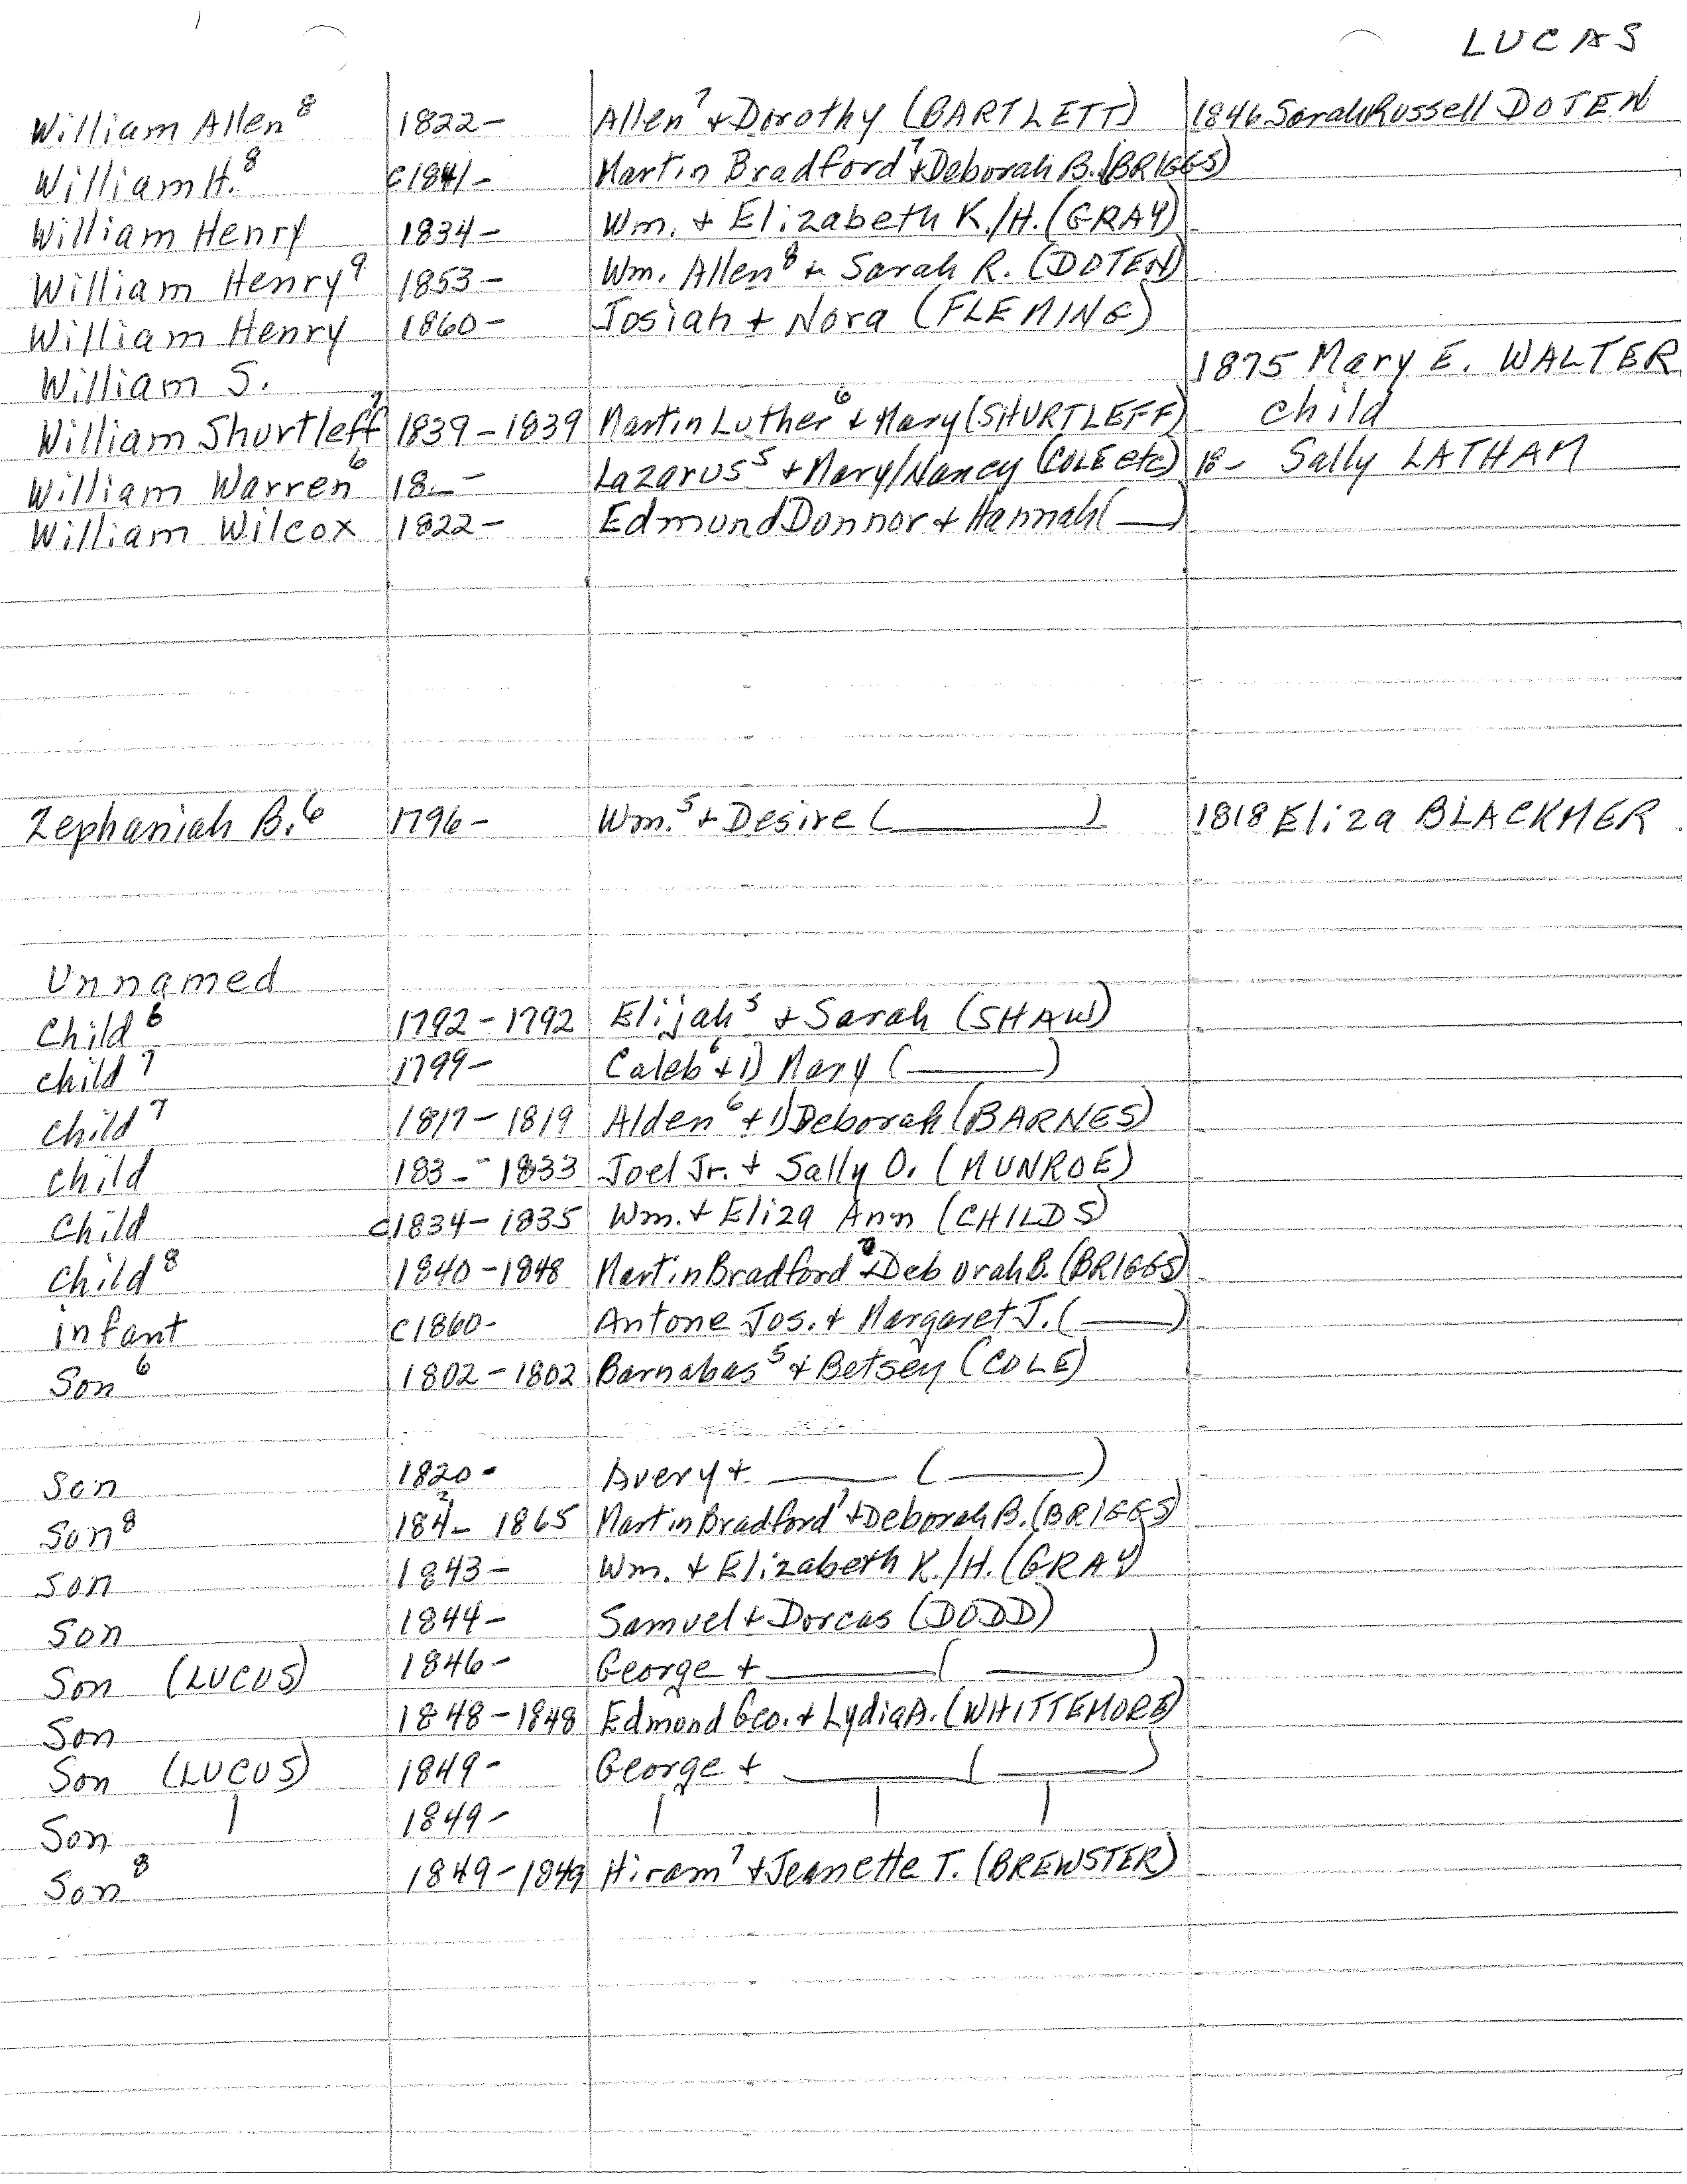 LUCAS
William Allen⁸ 1822- Allen⁷ + Dorothy (BARTLETT) 1846 Sarah Russell DOTEN
William H.⁸ c1841- Martin Bradford⁷ + Deborah B. (BRIGGS)
William Henry 1834- Wm. + Elizabeth K./H. (GRAY)
William Henry⁹ 1853- Wm. Allen⁸ + Sarah R. (DOTEN)
William Henry 1860- Josiah + Nora (FLEMING)
William S. 1875 Mary E. WALTER
William Shurtleff⁷ 1839-1839 Martin Luther⁶ + Mary (SHURTLEFF) child
William Warren⁶ 18__- Lazarus⁵ + Mary/Nancy (COLE etc) 18- Sally LATHAM
William Wilcox 1822- Edmund Donnor + Hannah (___)
Zephaniah B.⁶ 1796- Wm.⁵ + Desire (______) 1818 Eliza BLACKMER
Unnamed
Child⁶ 1792-1792 Elijah⁵ + Sarah (SHAW)
child⁷ 1799- Caleb⁶ + 1) Mary (_____)
child⁷ 1817-1819 Alden⁶ + 1) Deborah (BARNES)
child 183_-1833 Joel Jr. + Sally O. (MUNROE)
Child c1834-1835 Wm. + Eliza Ann (CHILDS)
child⁸ 1840-1848 Martin Bradford⁷ + Deborah B. (BRIGGS)
infant c1860- Antone Jos. + Margaret J. (____)
Son⁶ 1802-1802 Barnabas⁵ + Betsey (COLE)
Son 1820- Avery + _____ (_____)
Son⁸ 184_² 1865 Martin Bradford⁷ + Deborah B. (BRIGGS)
Son 1843- Wm. + Elizabeth K./H. (GRAY)
Son 1844- Samuel + Dorcas (DODD)
Son (LUCUS) 1846- George + ______ (______)
Son 1848-1848 Edmond Geo. + Lydia A. (WHITTEMORE)
Son (LUCUS) 1849- George + ______ (______)
Son | 1849- | | |
Son⁸ 1849-1849 Hiram⁷ + Jeanette T. (BREWSTER)